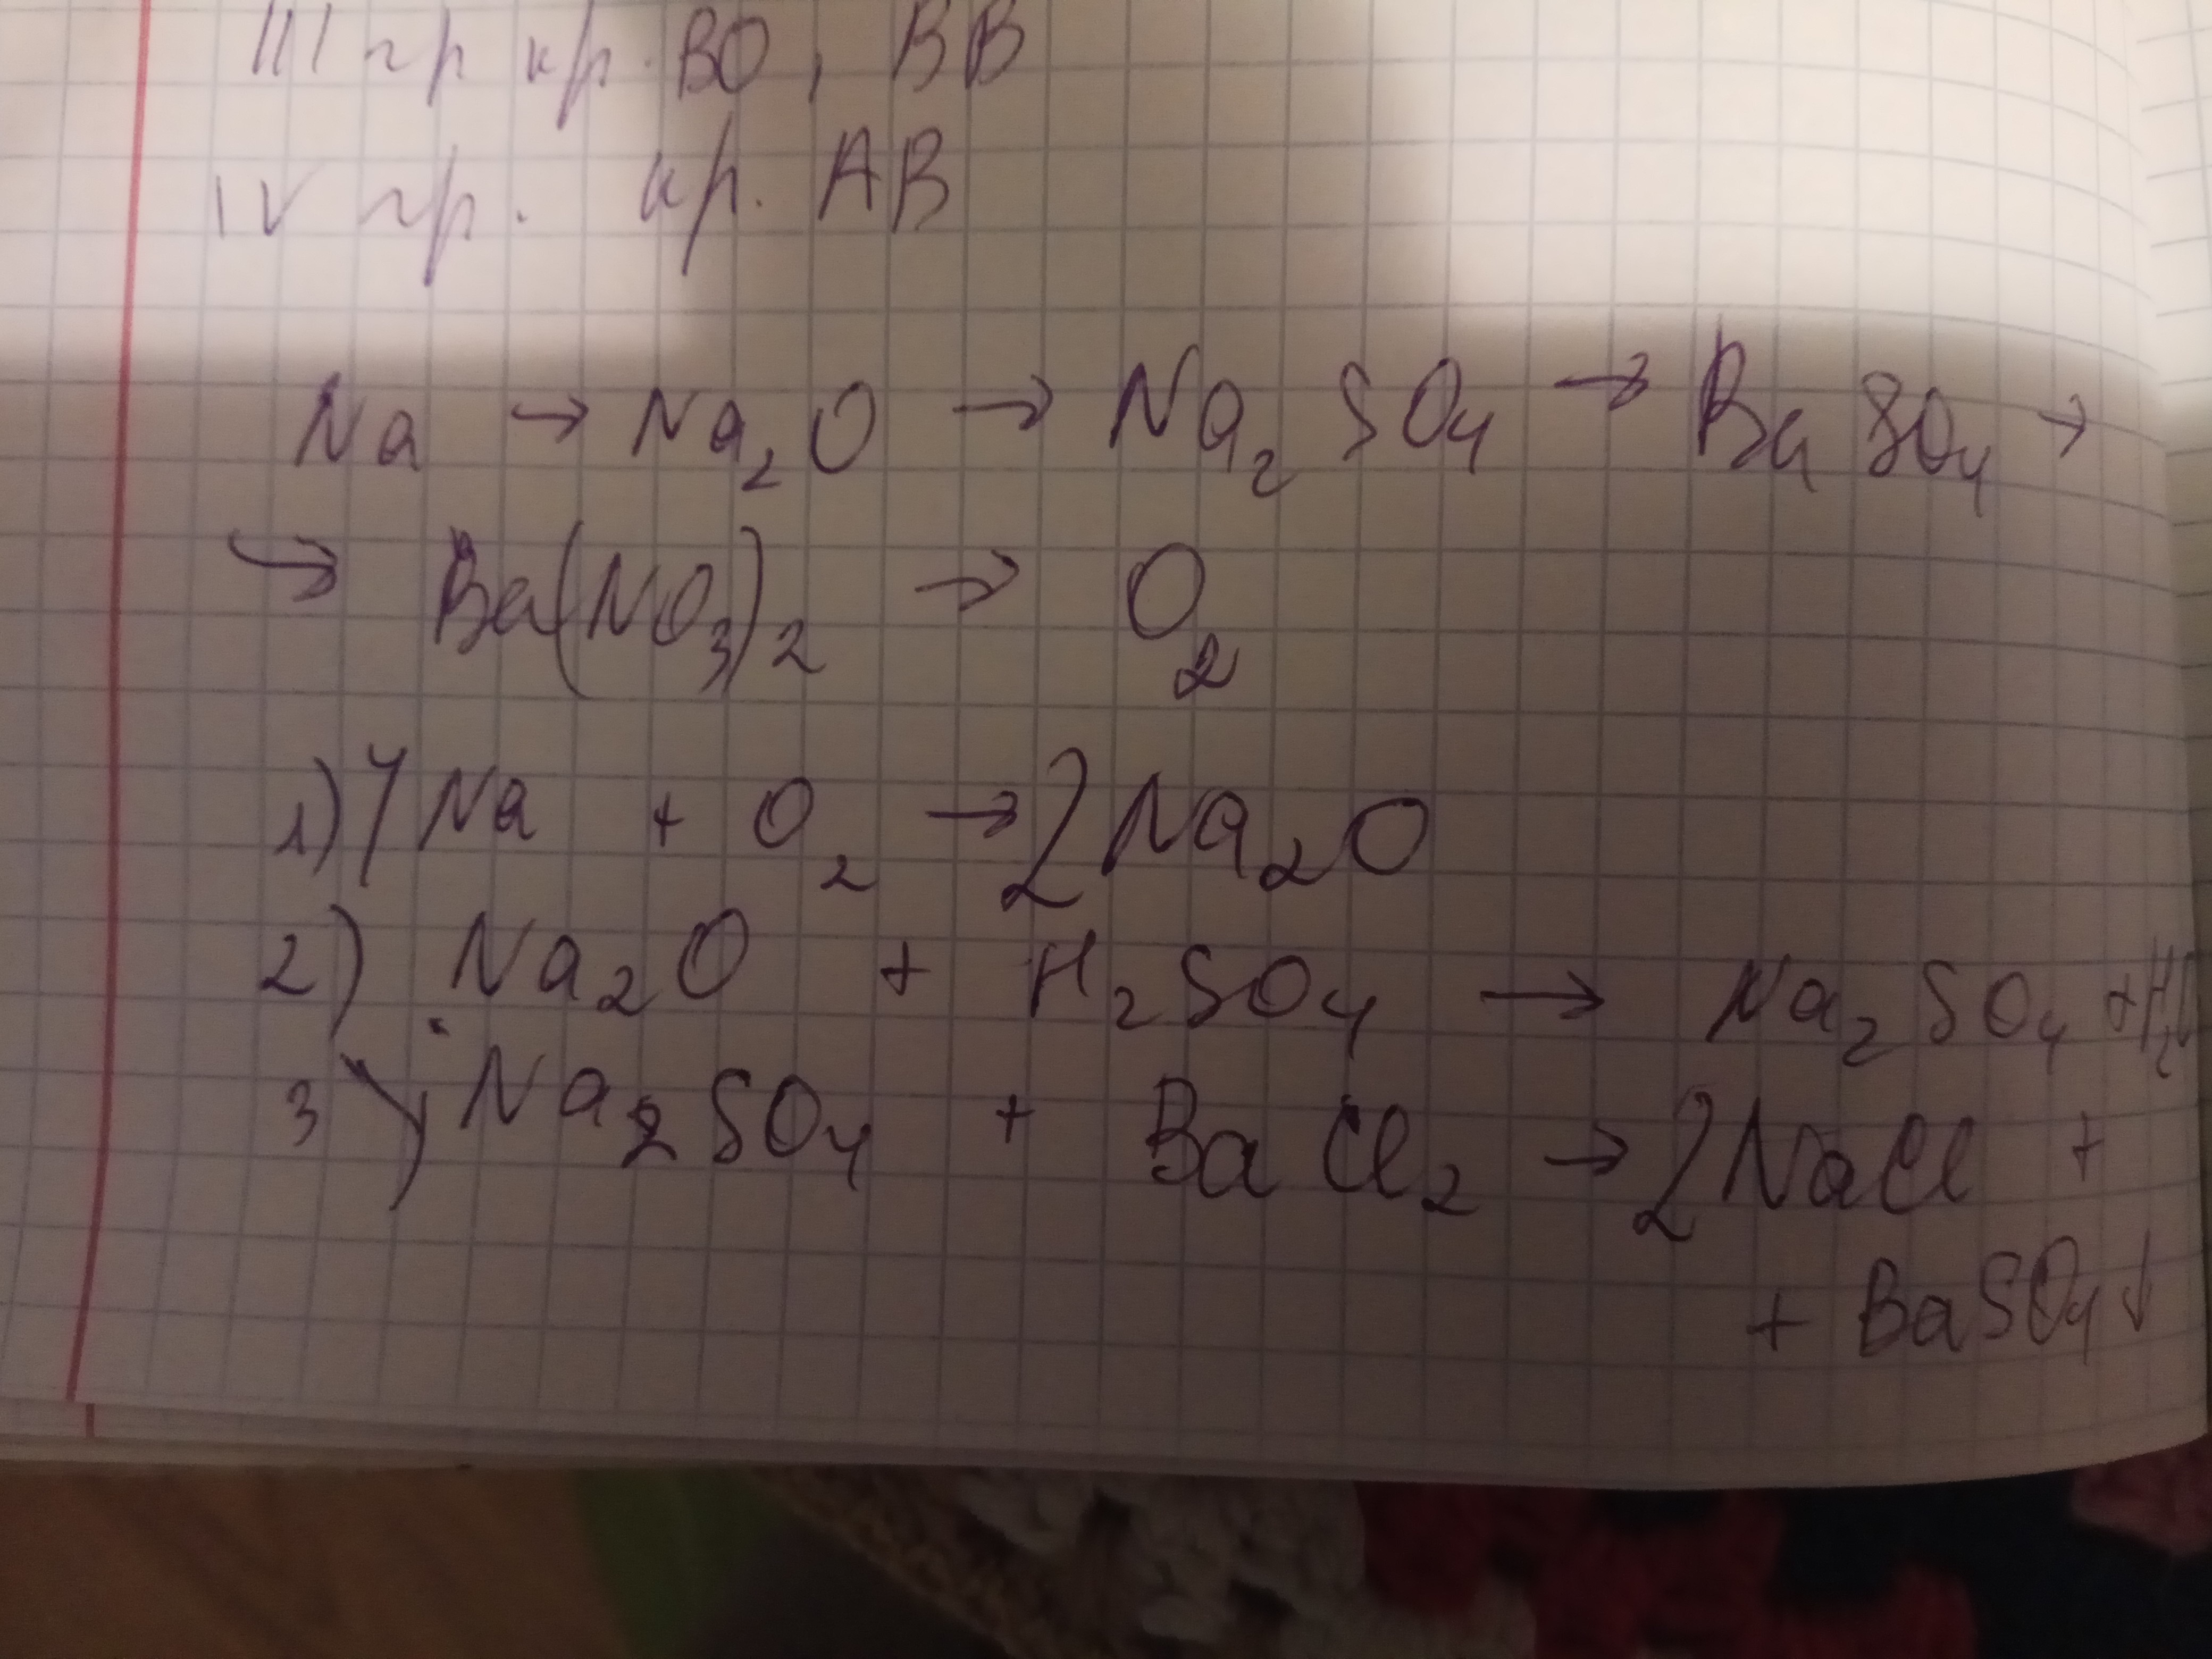 III гр кр. BO, BB
IV гр. кр. AB
Na → Na₂O → Na₂SO₄ → BaSO₄ →
→ Ba(NO₃)₂ → O₂
1) 4Na + O₂ → 2Na₂O
2) Na₂O + H₂SO₄ → Na₂SO₄ + H₂O
3) Na₂SO₄ + BaCl₂ → 2NaCl +
+ BaSO₄↓